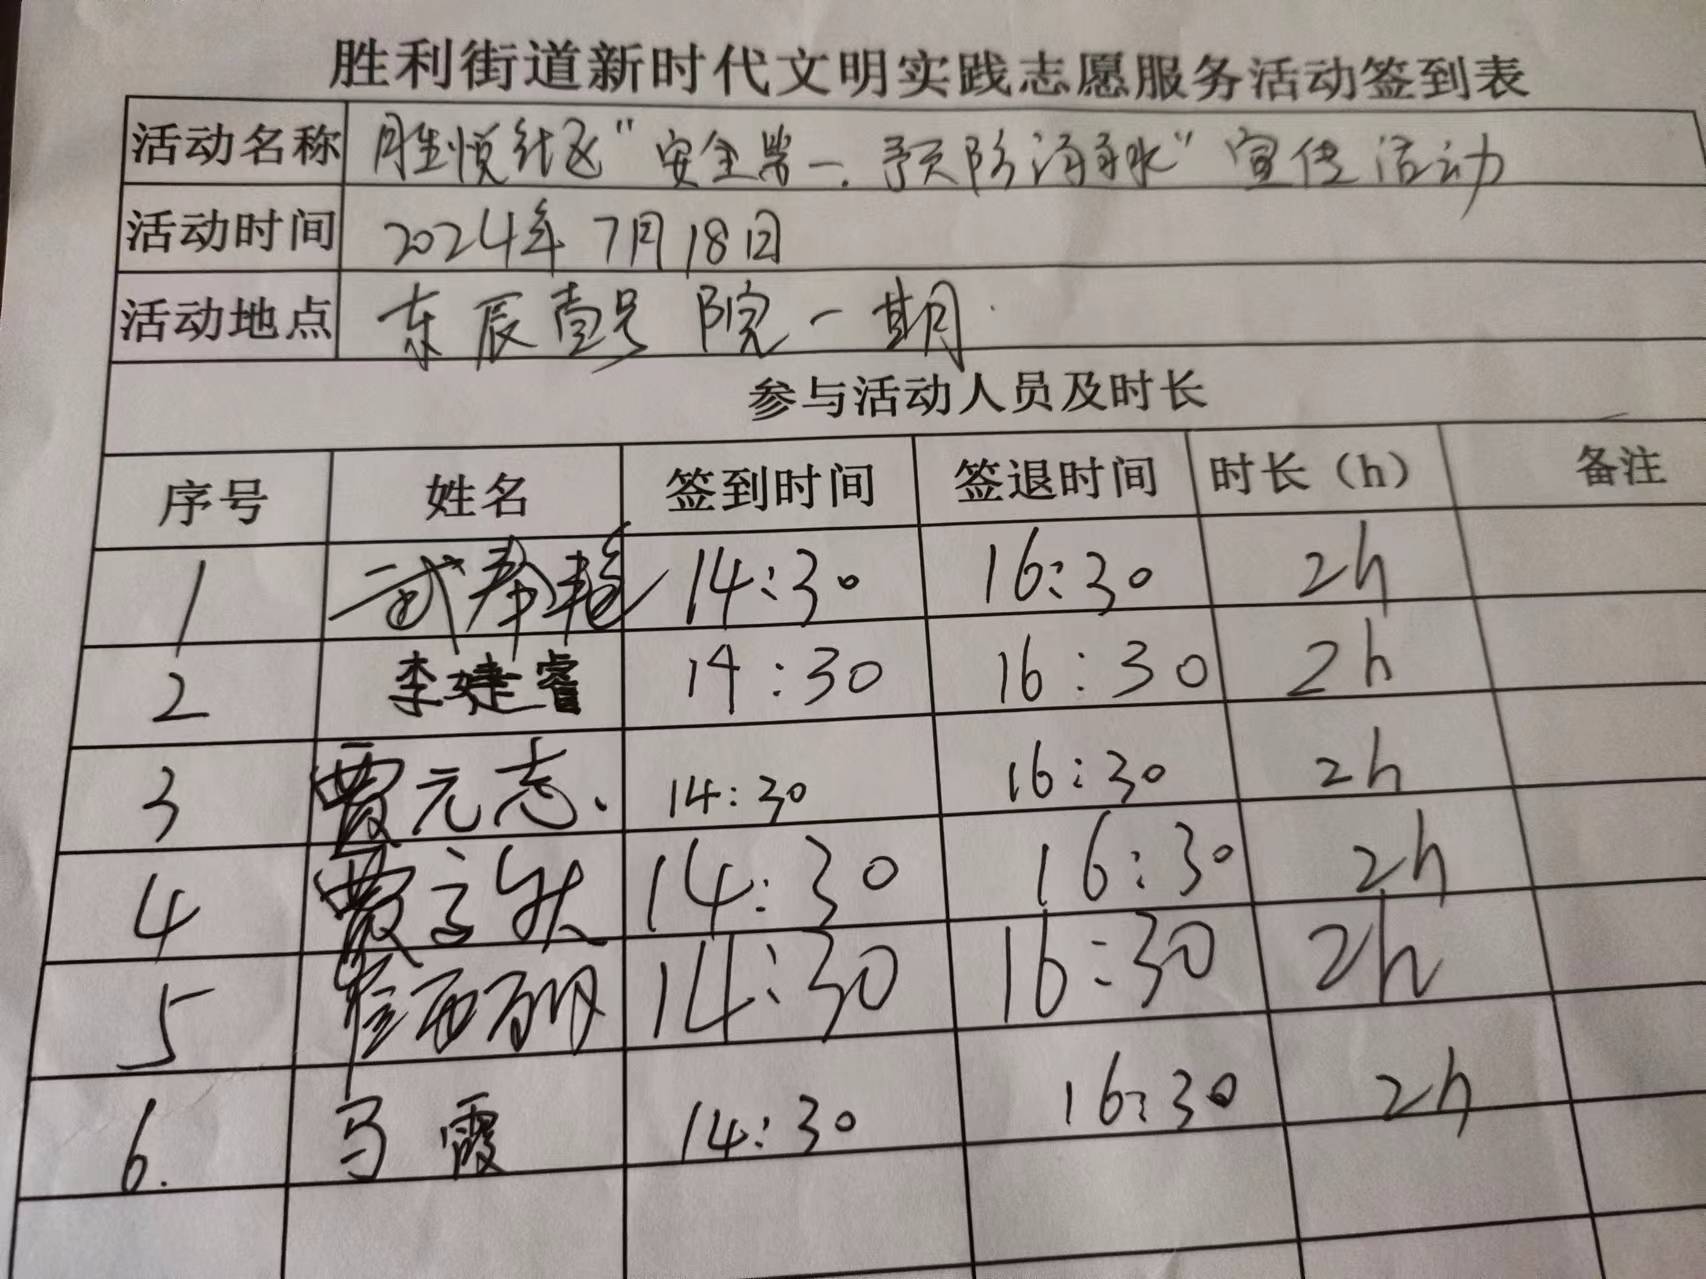 胜利街道新时代文明实践志愿服务活动签到表
活动名称 胜悦社区"安全第一、预防溺水"宣传活动
活动时间 2024年7月18日
活动地点 东辰壹号院一期
参与活动人员及时长
序号 姓名 签到时间 签退时间 时长（h） 备注
1 武 14:30 16:30 2h
2 李婕睿 14:30 16:30 2h
3 贾元志 14:30 16:30 2h
4 贾 14:30 16:30 2h
5 14:30 16:30 2h
6. 马霞 14:30 16:30 2h